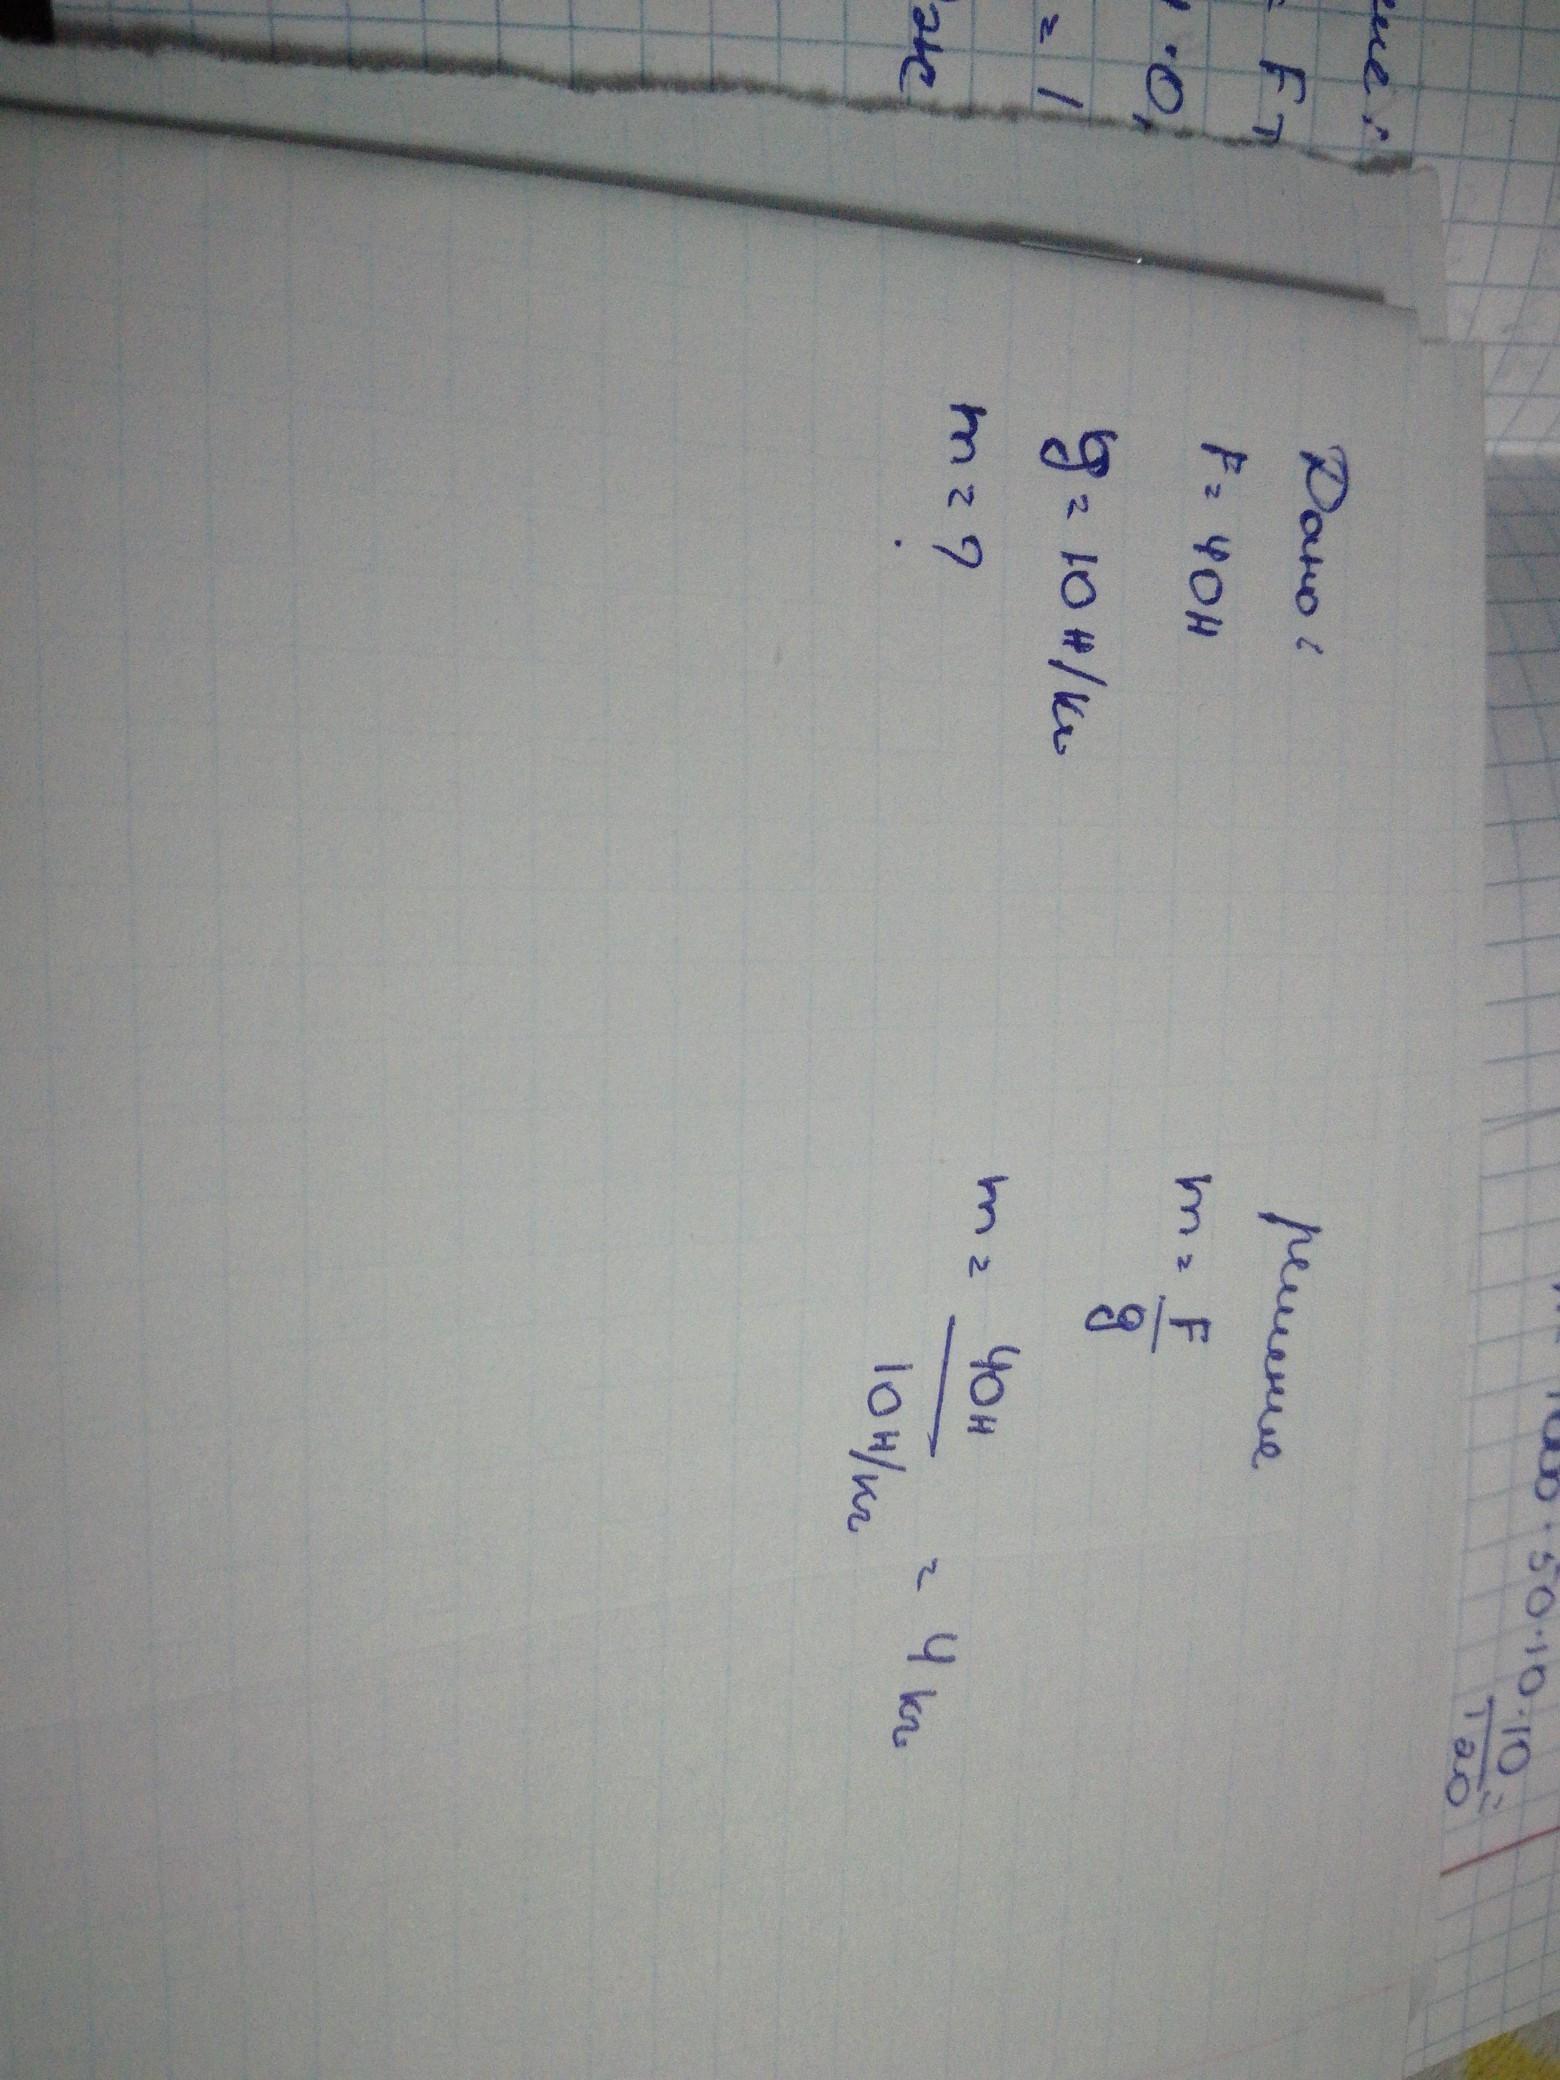 Дано:
F = 40Н
g = 10 Н/кг
m = ?
решение
m = F/g
m = 40Н / 10 Н/кг = 4 кг
= Fт
· 0,
= 1
· 50 · 10 · 10 =